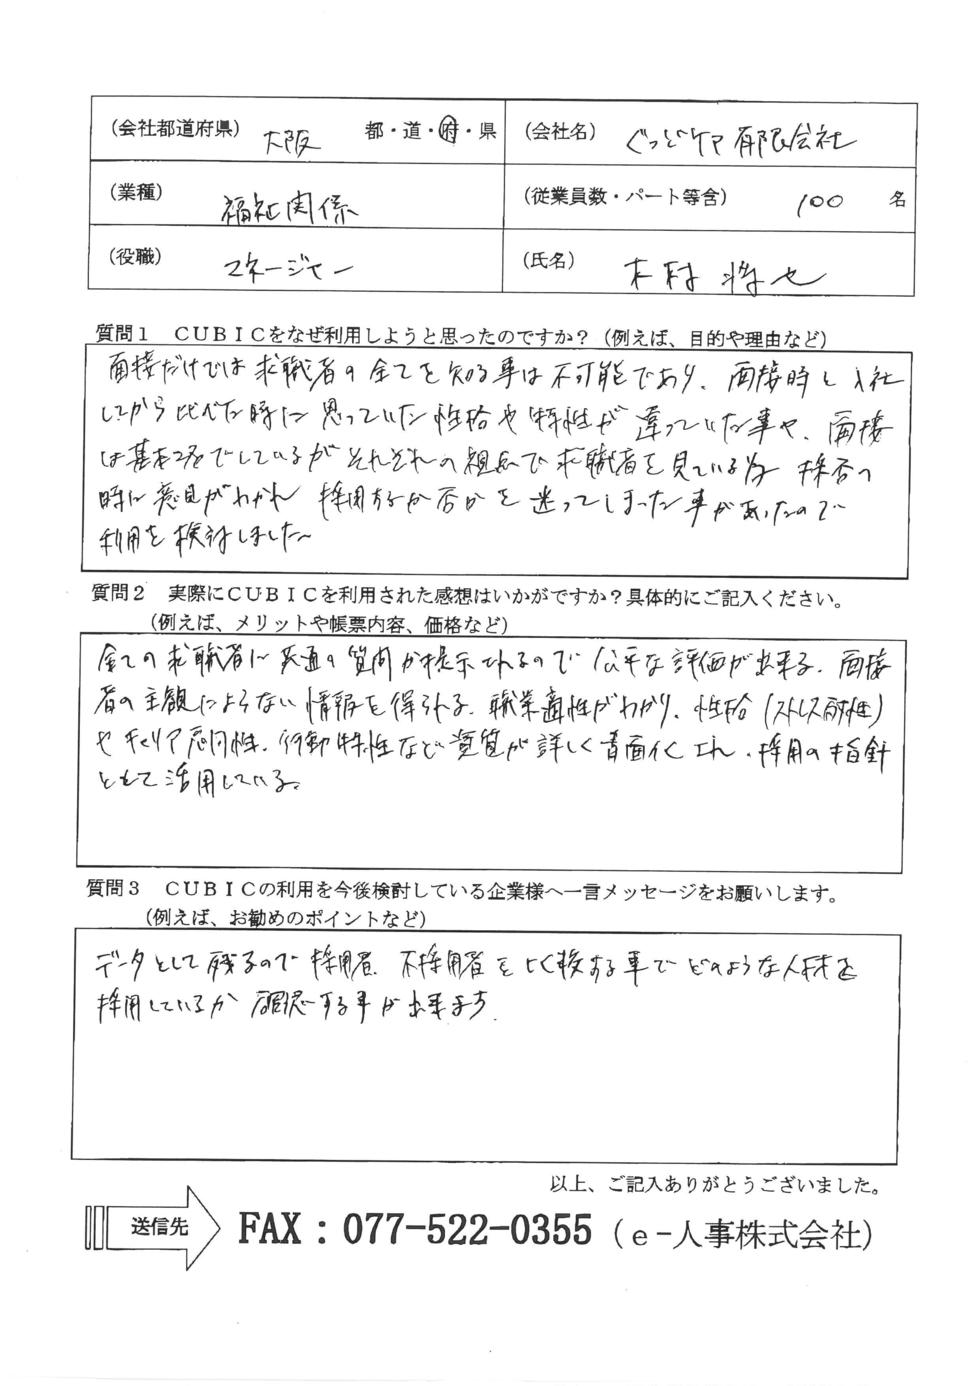 (会社都道府県) 大阪 都・道・府・県 (会社名) ぐっどケア有限会社
(業種) 福祉関係 (従業員数・パート等含) 100 名
(役職) マネージャー (氏名) 木村 将也
質問1 CUBICをなぜ利用しようと思ったのですか?(例えば、目的や理由など)
面接だけでは求職者の全てを知る事は不可能であり、面接時と入社
してから比べた時に思っていた性格や特性が違っていた事や、面接
は基本2名でしているがそれぞれの視点で求職者を見ている為 採否の
時に意見がわかれ 採用するか否かを迷ってしまった事があったので
利用を検討しました
質問2 実際にCUBICを利用された感想はいかがですか?具体的にご記入ください。
(例えば、メリットや帳票内容、価格など)
全ての求職者に共通の質問が提示されるので公平な評価が出来る。面接
者の主観によらない情報を得られる。職業適性がわかり、性格(ストレス耐性)
やキャリア志向性、行動特性など資質が詳しく書面化され、採用の指針
として活用している。
質問3 CUBICの利用を今後検討している企業様へ一言メッセージをお願いします。
(例えば、お勧めのポイントなど)
データとして残るので採用者、不採用者を比較する事でどのような人材を
採用しているか確認する事が出来ます。
以上、ご記入ありがとうございました。
送信先 FAX:077-522-0355(e-人事株式会社)